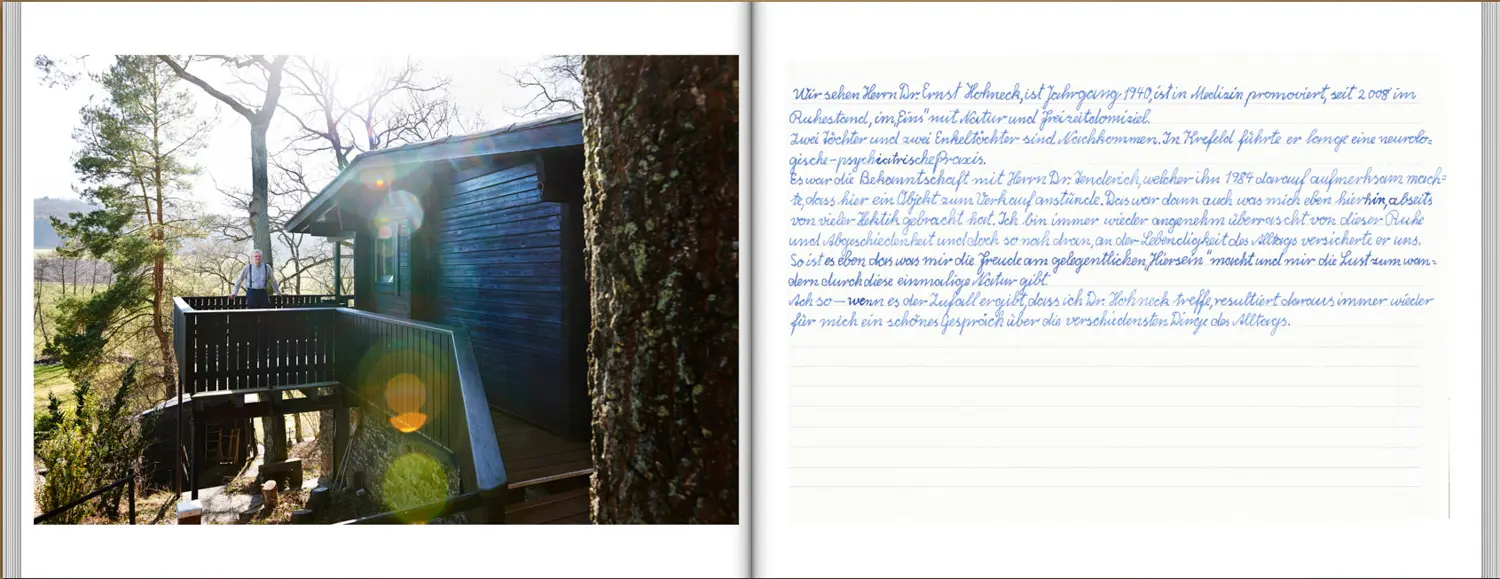 Wir sehen Herrn Dr. Ernst Hohneck, ist Jahrgang 1940, ist in Medizin promoviert, seit 2008 im
Ruhestand, im „Eins" mit Natur und Freizeitdomiziel.
Zwei Töchter und zwei Enkeltöchter sind Nachkommen. In Krefeld führte er lange eine neurolo-
gische-psychiatrische Praxis.
Es war die Bekanntschaft mit Herrn Dr. Tenderich, welcher ihn 1984 darauf aufmerksam mach-
te, dass hier ein Objekt zum Verkauf anstünde. Das war dann auch was mich eben hierhin, abseits
von vieler Hektik gebracht hat. Ich bin immer wieder angenehm überrascht von dieser Ruhe
und Abgeschiedenheit und doch so nah dran, an der Lebendigkeit des Alltags versicherte er uns.
So ist es eben das was mir die Freude am gelegentlichen „Hiersein" macht und mir die Lust zum wan-
dern durch diese einmalige Natur gibt.
Ach so – wenn es der Zufall ergibt, dass ich Dr. Hohneck treffe, resultiert daraus immer wieder
für mich ein schönes Gespräch über die verschiedensten Dinge des Alltags.